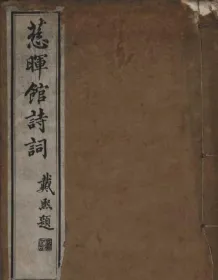 慈暉館詩詞
戴熙題